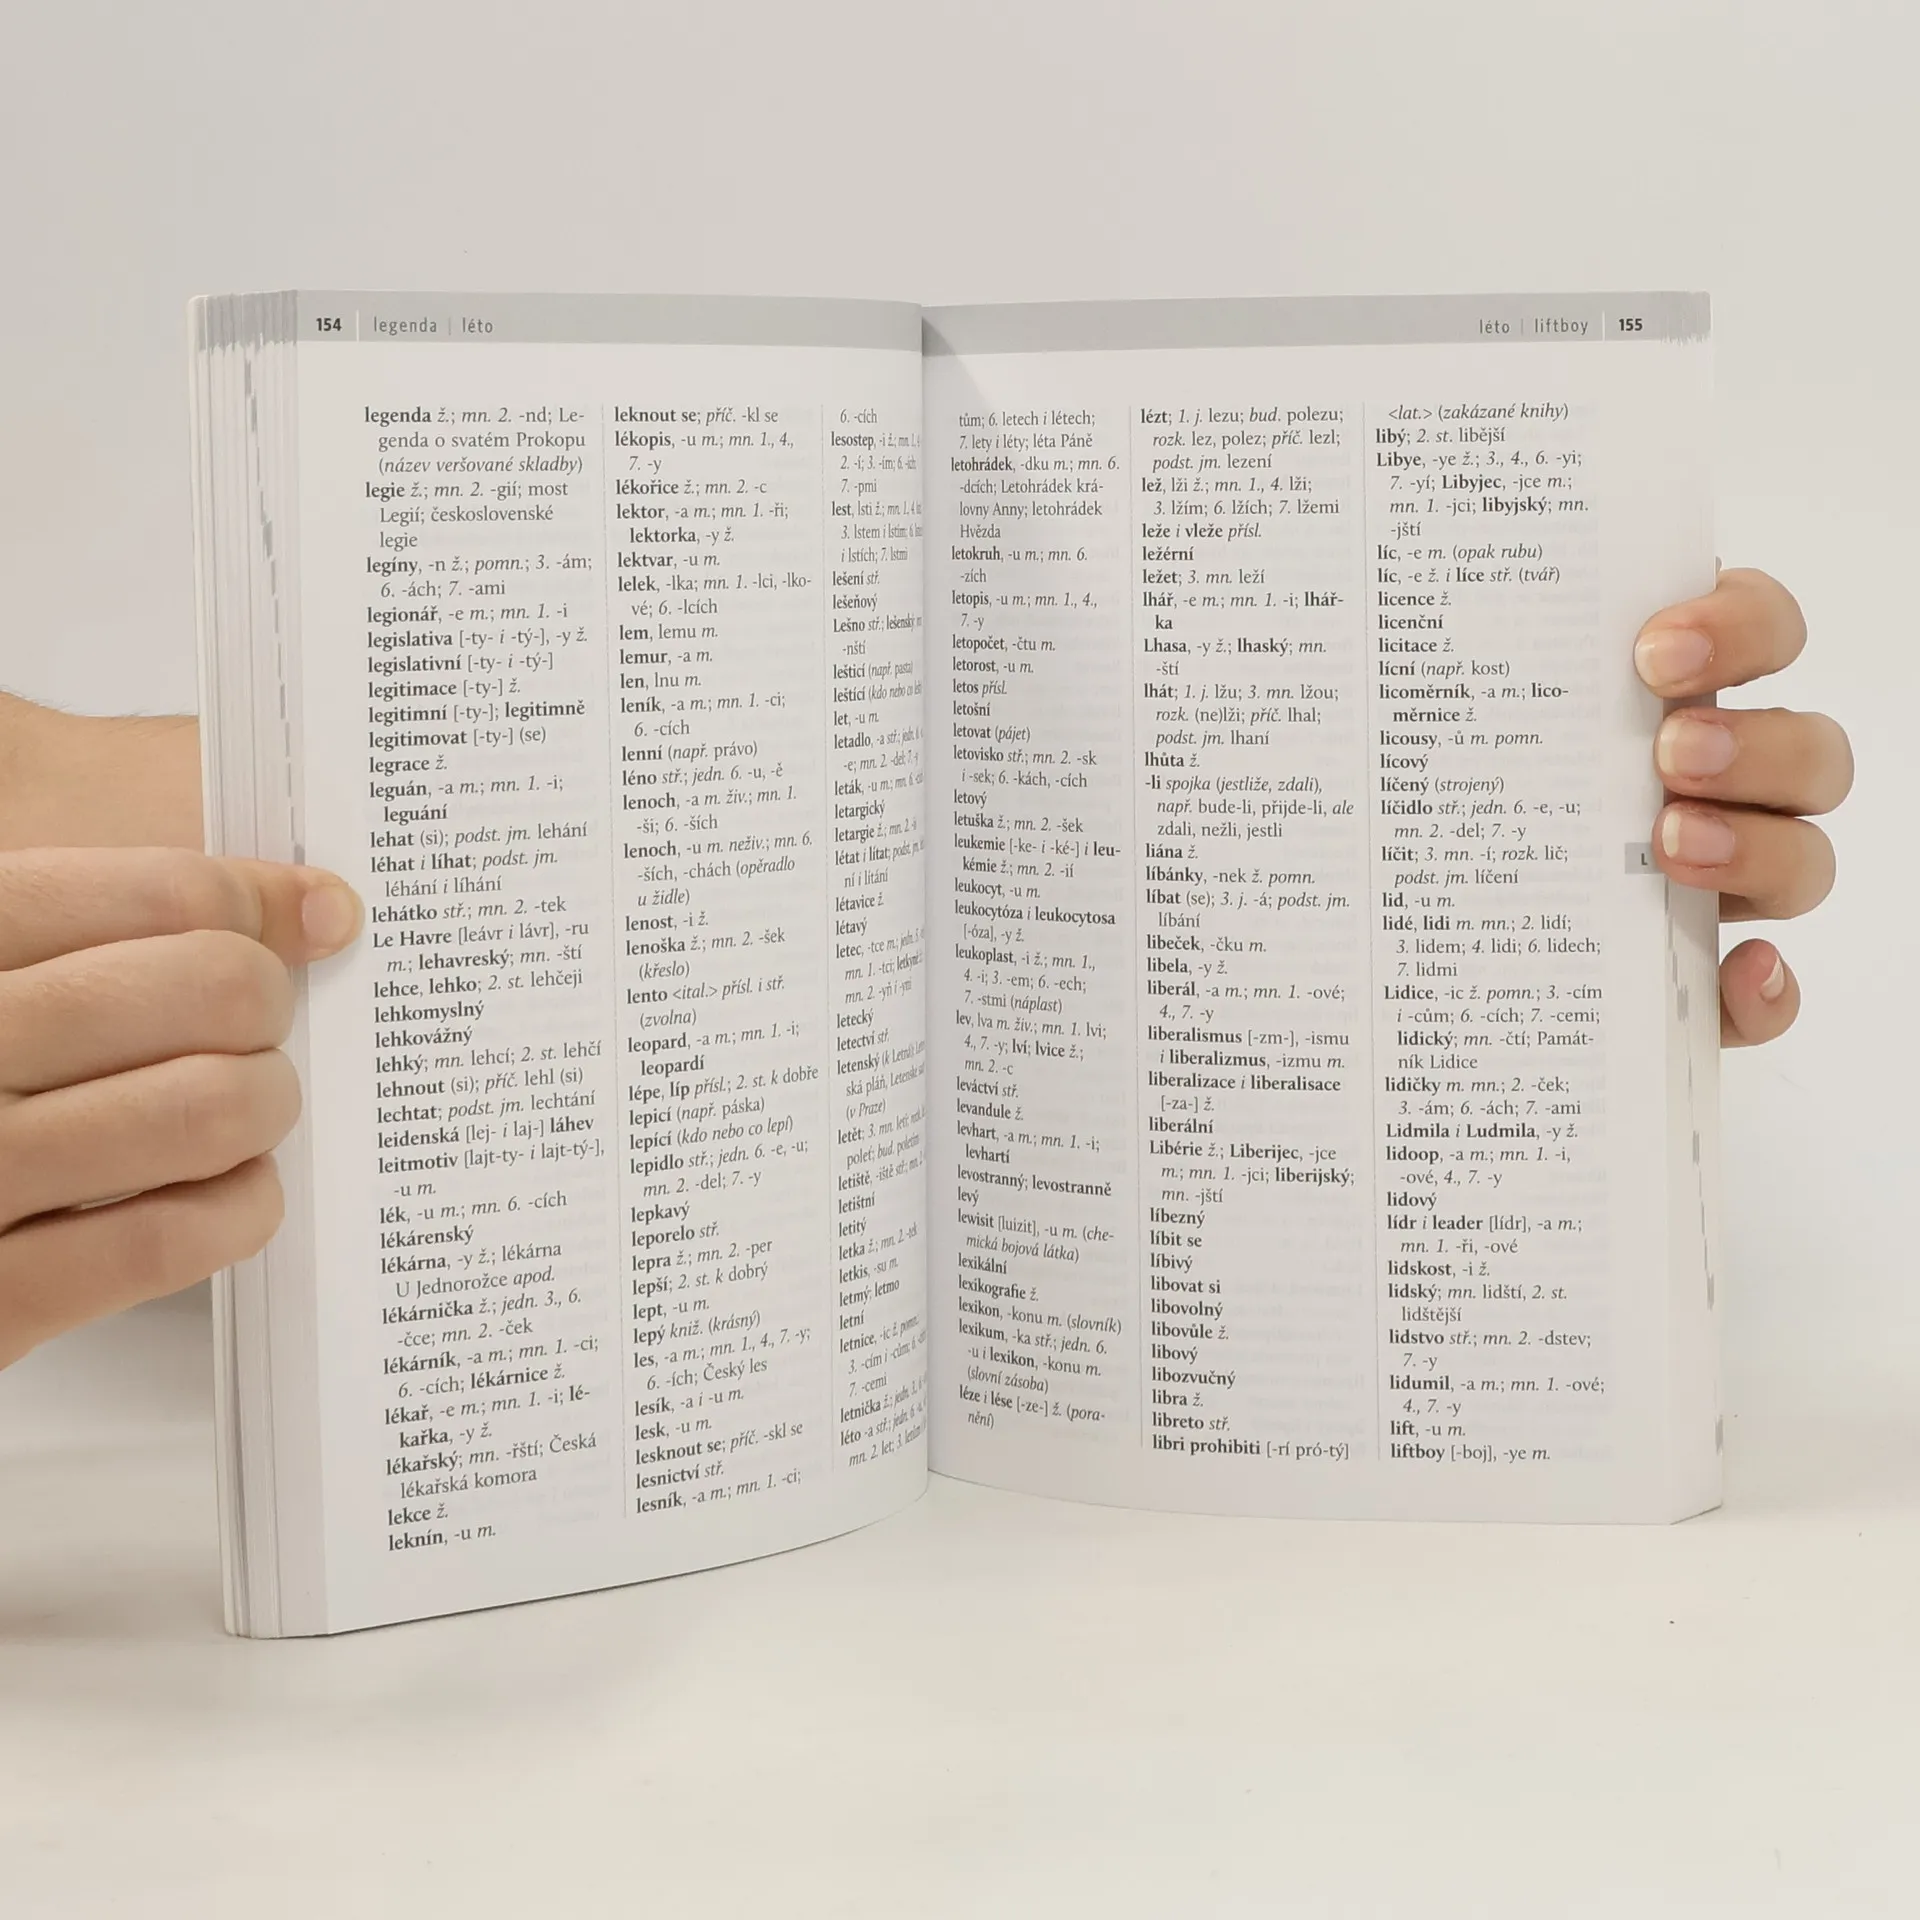 154 | legenda | léto
legenda ž.; mn. 2. -nd; Le-
genda o svatém Prokopu
(název veršované skladby)
legie ž.; mn. 2. -gií; most
Legií; československé
legie
legíny, -n ž.; pomn.; 3. -ám;
6. -ách; 7. -ami
legionář, -e m.; mn. 1. -i
legislativa [-ty- i -tý-], -y ž.
legislativní [-ty- i -tý-]
legitimace [-ty-] ž.
legitimní [-ty-]; legitimně
legitimovat [-ty-] (se)
legrace ž.
leguán, -a m.; mn. 1. -i;
leguání
lehat (si); podst. jm. lehání
léhat i líhat; podst. jm.
léhání i líhání
lehátko stř.; mn. 2. -tek
Le Havre [leávr i lávr], -ru
m.; lehavreský; mn. -ští
lehce, lehko; 2. st. lehčeji
lehkomyslný
lehkovážný
lehký; mn. lehcí; 2. st. lehčí
lehnout (si); příč. lehl (si)
lechtat; podst. jm. lechtání
leidenská [lej- i laj-] láhev
leitmotiv [lajt-ty- i lajt-tý-],
-u m.
lék, -u m.; mn. 6. -cích
lékárenský
lékárna, -y ž.; lékárna
U Jednorožce apod.
lékárnička ž.; jedn. 3., 6.
-čce; mn. 2. -ček
lékárník, -a m.; mn. 1. -ci;
6. -cích; lékárnice ž.
lékař, -e m.; mn. 1. -i; lé-
kařka, -y ž.
lékařský; mn. -řští; Česká
lékařská komora
lekce ž.
leknín, -u m.
leknout se; příč. -kl se
lékopis, -u m.; mn. 1., 4.,
7. -y
lékořice ž.; mn. 2. -c
lektor, -a m.; mn. 1. -ři;
lektorka, -y ž.
lektvar, -u m.
lelek, -lka; mn. 1. -lci, -lko-
vé; 6. -lcích
lem, lemu m.
lemur, -a m.
len, lnu m.
leník, -a m.; mn. 1. -ci;
6. -cích
lenní (např. právo)
léno stř.; jedn. 6. -u, -ě
lenoch, -a m. živ.; mn. 1.
-ši; 6. -ších
lenoch, -u m. neživ.; mn. 6.
-ších, -chách (opěradlo
u židle)
lenost, -i ž.
lenoška ž.; mn. 2. -šek
(křeslo)
lento <ital.> přísl. i stř.
(zvolna)
leopard, -a m.; mn. 1. -i;
leopardí
lépe, líp přísl.; 2. st. k dobře
lepicí (např. páska)
lepící (kdo nebo co lepí)
lepidlo stř.; jedn. 6. -e, -u;
mn. 2. -del; 7. -y
lepkavý
leporelo stř.
lepra ž.; mn. 2. -per
lepší; 2. st. k dobrý
lept, -u m.
lepý kniž. (krásný)
les, -a m.; mn. 1., 4., 7. -y;
6. -ích; Český les
lesík, -a i -u m.
lesk, -u m.
lesknout se; příč. -skl se
lesnictví stř.
lesník, -a m.; mn. 1. -ci;
6. -cích
lesostep, -i ž.; mn. 1., 4.
2. -í; 3. -ím; 6. -ích;
7. -pmi
lest, lsti ž.; mn. 1., 4. lsti;
3. lstem i lstím; 6.
i lstích; 7. lstmi
lešení stř.
lešeňový
Lešno stř.; lešenský;
-nští
lešticí (např. pasta)
leštící (kdo nebo co leští)
let, -u m.
letadlo, -a stř.; jedn. 6.
-e; mn. 2. -del; 7. -y
leták, -u m.; mn. 6.
letargický
letargie ž.; mn. 2. -í
létat i lítat; podst. jm.
ní i lítání
létavice ž.
létavý
letec, -tce m.; jedn. 5.
mn. 1. -tci; letkyně
mn. 2. -yň i -yní
letecký
letectví stř.
letenský (k Letná);
ská pláň, Letenské
(v Praze)
letět; 3. mn. letí; rozk.
poleť; bud. poletím
letiště, -iště stř.; mn. 2.
letištní
letitý
letka ž.; mn. 2. -tek
letkis, -su m.
letmý; letmo
letní
letnice, -ic ž. pomn.;
3. -cím i -cům; 6.
7. -cemi
letnička ž.; jedn. 3., 6.
léto -a stř.; jedn. 6.
mn. 2. let; 3.
léto | liftboy | 155
tům; 6. letech i létech;
7. lety i léty; léta Páně
letohrádek, -dku m.; mn. 6.
-dcích; Letohrádek krá-
lovny Anny; letohrádek
Hvězda
letokruh, -u m.; mn. 6.
-zích
letopis, -u m.; mn. 1., 4.,
7. -y
letopočet, -čtu m.
letorost, -u m.
letos přísl.
letošní
letovat (pájet)
letovisko stř.; mn. 2. -sk
i -sek; 6. -kách, -cích
letový
letuška ž.; mn. 2. -šek
leukemie [-ke- i -ké-] i leu-
kémie ž.; mn. 2. -ií
leukocyt, -u m.
leukocytóza i leukocytosa
[-óza], -y ž.
leukoplast, -i ž.; mn. 1.,
4. -i; 3. -em; 6. -ech;
7. -stmi (náplast)
lev, lva m. živ.; mn. 1. lvi;
4., 7. -y; lví; lvice ž.;
mn. 2. -c
leváctví stř.
levandule ž.
levhart, -a m.; mn. 1. -i;
levhartí
levostranný; levostranně
levý
lewisit [luizit], -u m. (che-
mická bojová látka)
lexikální
lexikografie ž.
lexikon, -konu m. (slovník)
lexikum, -ka stř.; jedn. 6.
-u i lexikon, -konu m.
(slovní zásoba)
léze i lése [-ze-] ž. (pora-
nění)
lézt; 1. j. lezu; bud. polezu;
rozk. lez, polez; příč. lezl;
podst. jm. lezení
lež, lži ž.; mn. 1., 4. lži;
3. lžím; 6. lžích; 7. lžemi
leže i vleže přísl.
ležérní
ležet; 3. mn. leží
lhář, -e m.; mn. 1. -i; lhář-
ka
Lhasa, -y ž.; lhaský; mn.
-ští
lhát; 1. j. lžu; 3. mn. lžou;
rozk. (ne)lži; příč. lhal;
podst. jm. lhaní
lhůta ž.
-li spojka (jestliže, zdali),
např. bude-li, přijde-li, ale
zdali, nežli, jestli
liána ž.
líbánky, -nek ž. pomn.
líbat (se); 3. j. -á; podst. jm.
líbání
libeček, -čku m.
libela, -y ž.
liberál, -a m.; mn. 1. -ové;
4., 7. -y
liberalismus [-zm-], -ismu
i liberalizmus, -izmu m.
liberalizace i liberalisace
[-za-] ž.
liberální
Libérie ž.; Liberijec, -jce
m.; mn. 1. -jci; liberijský;
mn. -jští
líbezný
líbit se
líbivý
libovat si
libovolný
libovůle ž.
libový
libozvučný
libra ž.
libreto stř.
libri prohibiti [-rí pró-tý]
<lat.> (zakázané knihy)
libý; 2. st. libější
Libye, -ye ž.; 3., 4., 6. -yi;
7. -yí; Libyjec, -jce m.;
mn. 1. -jci; libyjský; mn.
-jští
líc, -e m. (opak rubu)
líc, -e ž. i líce stř. (tvář)
licence ž.
licenční
licitace ž.
lícní (např. kost)
licoměrník, -a m.; lico-
měrnice ž.
licousy, -ů m. pomn.
lícový
líčený (strojený)
líčidlo stř.; jedn. 6. -e, -u;
mn. 2. -del; 7. -y
líčit; 3. mn. -í; rozk. lič;
podst. jm. líčení
lid, -u m.
lidé, lidi m. mn.; 2. lidí;
3. lidem; 4. lidi; 6. lidech;
7. lidmi
Lidice, -ic ž. pomn.; 3. -cím
i -cům; 6. -cích; 7. -cemi;
lidický; mn. -čtí; Památ-
ník Lidice
lidičky m. mn.; 2. -ček;
3. -ám; 6. -ách; 7. -ami
Lidmila i Ludmila, -y ž.
lidoop, -a m.; mn. 1. -i,
-ové, 4., 7. -y
lidový
lídr i leader [lídr], -a m.;
mn. 1. -ři, -ové
lidskost, -i ž.
lidský; mn. lidští, 2. st.
lidštější
lidstvo stř.; mn. 2. -dstev;
7. -y
lidumil, -a m.; mn. 1. -ové;
4., 7. -y
lift, -u m.
liftboy [-boj], -ye m.
L